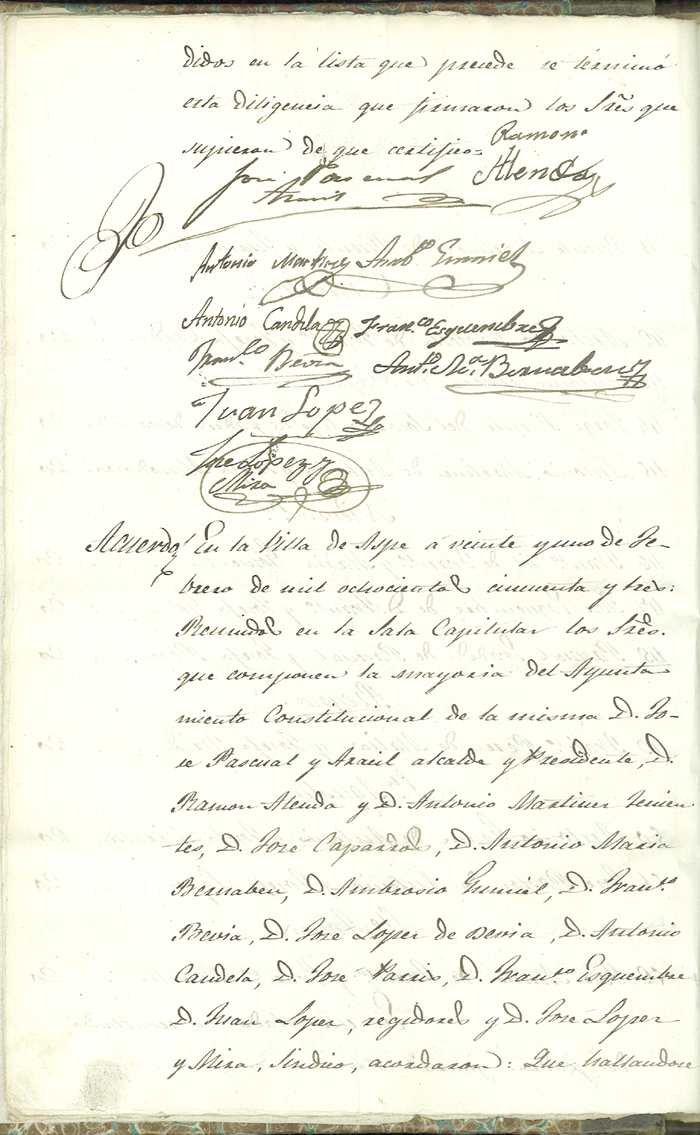 didos en la lista que precede se terminó
esta diligencia que firmaron los Sres que
supieron de que certifico=
Ramon
Alenda
José Pascual
Aracil
Antonio Martinez Amb.º Gumiel
Antonio Candela Fran.co Esquembre
Fran.co Bevia Ant.º M.a Bernabeu
Juan Lopez
Jose Lopez y
Mira
Acuerdo En la Villa de Aspe á veinte y uno de Fe-
brero de mil ochocientos cincuenta y tres:
Reunidos en la Sala Capitular los Sres.
que componen la mayoria del Ayunta
miento Constitucional de la misma D. Jo-
se Pascual y Aracil alcalde y Presidente, D.
Ramon Alenda y D. Antonio Martinez tenien
tes, D. José Caparros, D. Antonio Maria
Bernabeu, D. Ambrosio Gumiel, D. Fran.co
Bevia, D. José Lopez de Bevia, D. Antonio
Candela, D. José D. Fran.co Esquembre
D. Juan Lopez, regidores y D. José Lopez
y Mira, Sindico, acordaron: Que hallandose